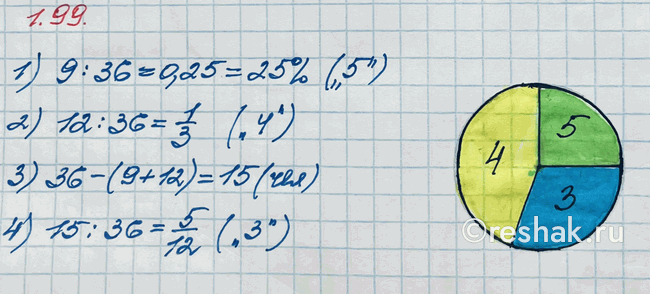 1.99.
1) 9 : 36 = 0,25 = 25% („5”)
2) 12 : 36 = 1/3 („4”)
3) 36 - (9 + 12) = 15 (чел)
4) 15 : 36 = 5/12 („3”)
5
4
3
©reshak.ru